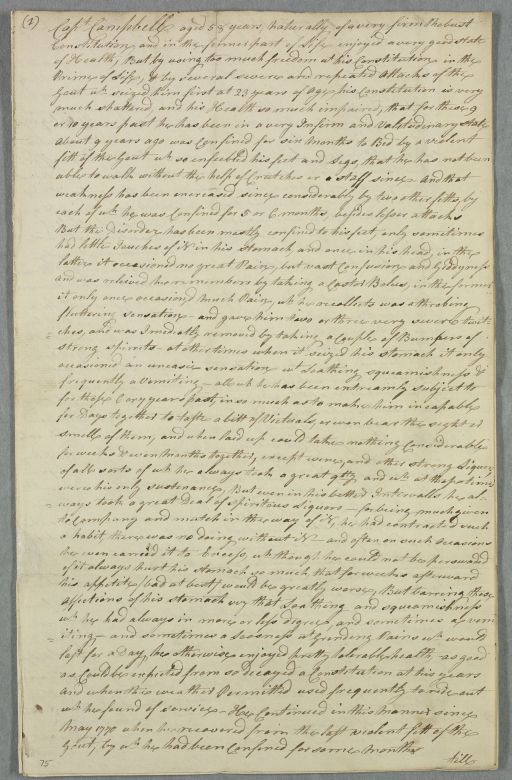 (1) Capt. Campbell aged 58 years, Naturally of a very firm Robust
Constitution, and in the former part of Life enjoyed a very good state
of Health, But by using too much freedom at his Constitution in the
Prime of Life, & by several severe and repeated Attacks of the
Gout wh. seized him first at 23 years of age his Constitution is very
much shattered and his Health so much impaired, that for these 9
or 10 years past he has been in a very Infirm and Valetudinary state
About 9 years ago was Confined for six months to Bed by a violent
fitt of the Gout wh. so enfeebled his feet and Legs, that he has not been
able to walk without the help of Crutches or a staff since. And that
weakness has been encreased since considerably by two other fitts, by
each of wh. he was Confined for 5 or 6 months, besides lesser attacks
But the Disorder has been mostly confined to his feet, only sometimes
had little Touches of it in his Stomach and once in his head, in the
latter it occasioned no great Pain, but vast Confusion and Giddyness
and was relieved he remembers by taking a Castor Bolus, in the former
it only once occasioned much Pain, wh. he recollects was a throbing
fluttering sensation and gave him two or three very severe twit
ches, and was Imediatly removed by taking a Couple of Bumpers of
strong spirits - at other times when it seized his stomach it only
occasioned an uneasie sensation wt. loathing squeamishness &
frequently a Vomiting - all wh. he has been extreamly subject to
for these 6 or 7 years past, in so much as to make him incapable
for Days together to taste a bitt of Victuals, or even bear the sight or
smell of them, and when laid up could take nothing Considerable
for weeks & even Months together, except wine, and other strong Liquors
of all sorts of wh. he always took a great qty, and wh. at those times
were his only sustenance. But even in his betted Intervalls he al-
ways took a great Deal of Spiritous Liquors - for being much given
to Company and much in the way of it, he had contracted such
a habit there was no doing without it - and often on such occasions
he even carried it to Excess, wh. though he could not be persuaded
of it always hurt his stomach so much that for weeks afterward
his appetite (bad at best) would be greatly worse, But barring those
affections of his stomach that Loathing and squeamishness
wh. he had always in more or less degree, and sometimes a vom
iting - and sometimes a Looseness & Grinding Pains wh. would
last for a Day, he otherwise enjoyed pretty tolerable health, as good
as could be expected from so decayed a Constitution at his years
and when the weather Permitted used frequently to ride out
wh. he found of service - He Continued in this Manner since
May 1770 when he recovered from the last violent fitt of the
Gout, by wh. he had been Confined for some Months
till
75